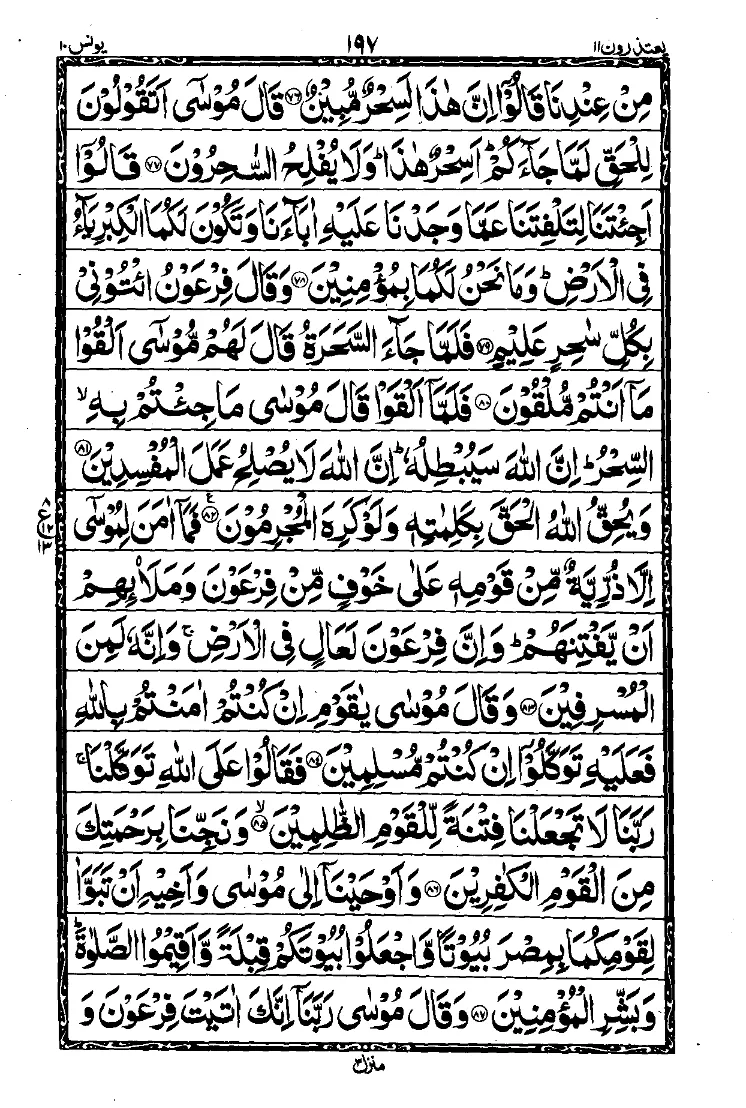 یعتذرون ۱۱ ۱۹۷ یونس ۱۰
مِنْ عِنْدِنَا قَالُوْۤا اِنَّ هٰذَا لَسِحْرٌ مُّبِیْنٌ ۝۷۶ قَالَ مُوْسٰۤی اَتَقُوْلُوْنَ
لِلْحَقِّ لَمَّا جَآءَكُمْ ؕ اَسِحْرٌ هٰذَا ؕ وَلَا یُفْلِحُ السّٰحِرُوْنَ ۝۷۷ قَالُوْۤا
اَجِئْتَنَا لِتَلْفِتَنَا عَمَّا وَجَدْنَا عَلَیْهِ اٰبَآءَنَا وَتَكُوْنَ لَكُمَا الْكِبْرِیَآءُ
فِی الْاَرْضِ ؕ وَمَا نَحْنُ لَكُمَا بِمُؤْمِنِیْنَ ۝۷۸ وَقَالَ فِرْعَوْنُ ائْتُوْنِیْ
بِكُلِّ سٰحِرٍ عَلِیْمٍ ۝۷۹ فَلَمَّا جَآءَ السَّحَرَةُ قَالَ لَهُمْ مُّوْسٰۤی اَلْقُوْا
مَاۤ اَنْتُمْ مُّلْقُوْنَ ۝۸۰ فَلَمَّاۤ اَلْقَوْا قَالَ مُوْسٰی مَا جِئْتُمْ بِهِ ۙ
السِّحْرُ ؕ اِنَّ اللّٰهَ سَیُبْطِلُهٗ ؕ اِنَّ اللّٰهَ لَا یُصْلِحُ عَمَلَ الْمُفْسِدِیْنَ ۝۸۱
وَیُحِقُّ اللّٰهُ الْحَقَّ بِكَلِمٰتِهٖ وَلَوْ كَرِهَ الْمُجْرِمُوْنَ ۝۸۲ ع فَمَاۤ اٰمَنَ لِمُوْسٰۤی
اِلَّا ذُرِّیَّةٌ مِّنْ قَوْمِهٖ عَلٰی خَوْفٍ مِّنْ فِرْعَوْنَ وَمَلَا۠ىِٕهِمْ
اَنْ یَّفْتِنَهُمْ ؕ وَاِنَّ فِرْعَوْنَ لَعَالٍ فِی الْاَرْضِ ۚ وَاِنَّهٗ لَمِنَ
الْمُسْرِفِیْنَ ۝۸۳ وَقَالَ مُوْسٰی یٰقَوْمِ اِنْ كُنْتُمْ اٰمَنْتُمْ بِاللّٰهِ
فَعَلَیْهِ تَوَكَّلُوْۤا اِنْ كُنْتُمْ مُّسْلِمِیْنَ ۝۸۴ فَقَالُوْا عَلَی اللّٰهِ تَوَكَّلْنَا ۚ
رَبَّنَا لَا تَجْعَلْنَا فِتْنَةً لِّلْقَوْمِ الظّٰلِمِیْنَ ۝۸۵ ۙ وَنَجِّنَا بِرَحْمَتِكَ
مِنَ الْقَوْمِ الْكٰفِرِیْنَ ۝۸۶ وَاَوْحَیْنَاۤ اِلٰی مُوْسٰی وَاَخِیْهِ اَنْ تَبَوَّاٰ
لِقَوْمِكُمَا بِمِصْرَ بُیُوْتًا وَّاجْعَلُوْا بُیُوْتَكُمْ قِبْلَةً وَّاَقِیْمُوا الصَّلٰوةَ ؕ
وَبَشِّرِ الْمُؤْمِنِیْنَ ۝۸۷ وَقَالَ مُوْسٰی رَبَّنَاۤ اِنَّكَ اٰتَیْتَ فِرْعَوْنَ وَ
۸
ع ۱۲
۱۳
منزل ۳